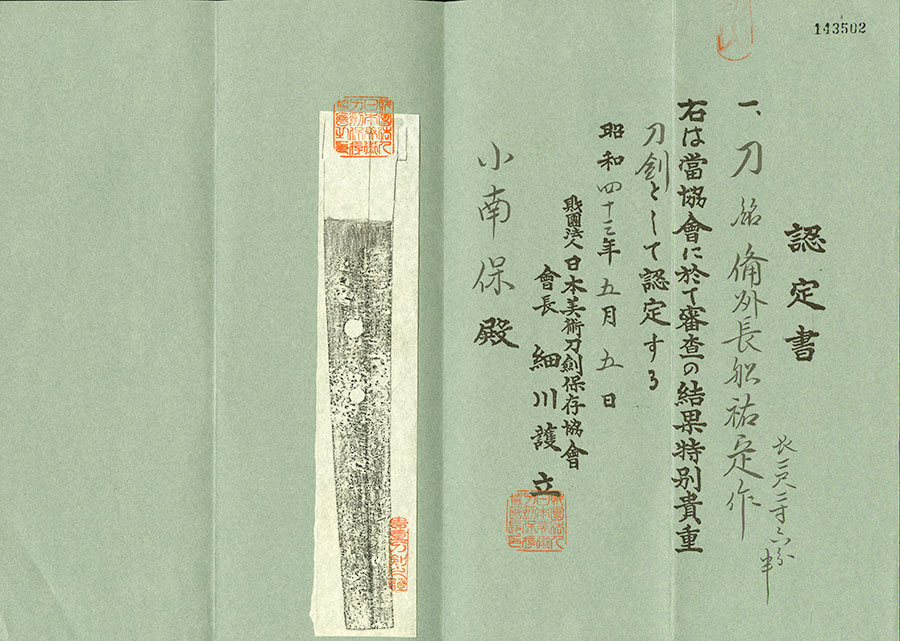 143502
認定書
一、刀 銘 備州長船祐定作
長二尺二寸六分半
右は當協會に於て審査の結果特別貴重
刀劍として認定する
昭和四十三年五月五日
財團法人日本美術刀劍保存協會
會長 細川護立
小南保殿